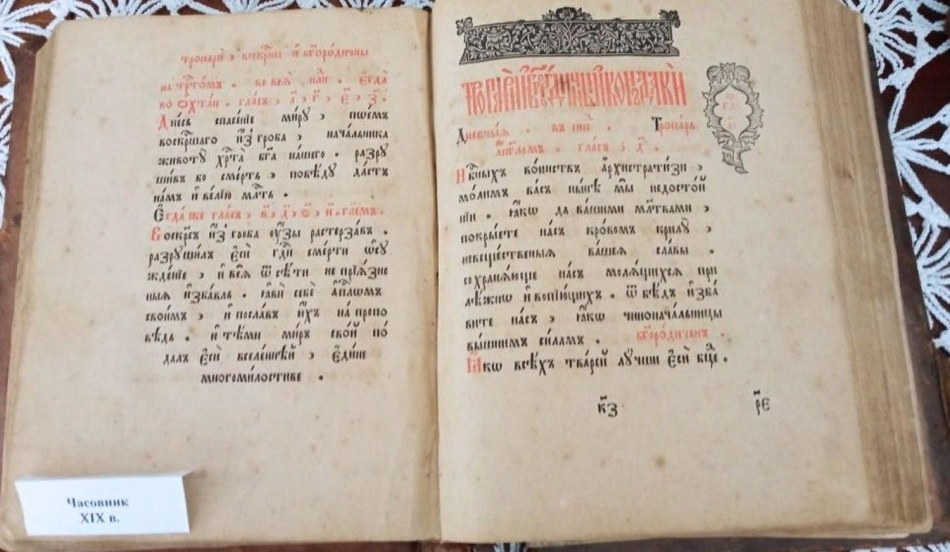 тропари҆, воскр҃сны и҆ бг҃оро́дичны
на тре́томъ . во всѧ̀ нл҃и . є҆гда̀
во ѻ҆хта́и . гла́съ , а҃ , г҃ , є҃ , з҃ .
Дне́сь спасе́нїе ми́рꙋ , пое́мъ
воскр҃шаго и҆з̾ гро́ба , нача́льника
животꙋ̀ хрⷭ҇та̀ бг҃а на́шего . разрꙋ
ши́въ бо сме́рть , побѣ́дꙋ да́стъ
на́мъ и҆ ве́лїю млⷭ҇ть .
Є҆гда́ же гла́съ , в҃ , д҃ , ѕ҃ , и҃ . гл҃емъ .
Воскр҃съ и҆з̾ гро́ба ᲂу҆́зы растерза́въ .
разрꙋши́лъ є҆сѝ гдⷭ҇и сме́рти ѡ҆сꙋ
жде́нїе , и҆ всѧ̀ ѿ сѣ́ти не прїѧ́зне
ныѧ и҆зба́вль . ꙗ҆ви́ себѐ а҆пⷭ҇ломъ
свои́мъ , и҆ посла́въ и҆́хъ на пропо
вѣдь . и҆ тѣ́ми ми́ръ сво́й по́
далъ є҆сѝ вселе́ннѣй , є҆ди́не
многоми́лостиве .
Часовник
XIX в.
Дне́вныѧ . въ пнⷣе . Тропа́рь
а҆́нг҃ломъ . гла́съ , д҃ .
Нбⷭ҇ныхъ во́инствъ а҆рхистрати́зи ,
мо́лимъ ва́съ ны́нѣ мы̀ недосто́й
нїи . ꙗ҆́кѡ да ва́шими мл҃твами ,
покры́ете на́съ кро́вомъ крилꙋ̀ ,
невеще́ственыѧ ва́шеѧ сла́вы .
сохранѧ́юще на́съ молѧ́щихсѧ при
лѣ́жнѡ и҆ вопїю́щихъ . ѿ бѣ́дъ и҆зба́
вите на́съ , ꙗ҆́кѡ чинонача́льницы
вы́шнимъ си́ламъ . бг҃оро́диченъ .
Ꙗ҆́кѡ всѣ́хъ тва́рей лꙋ́чши є҆сѝ бцⷣе .
к҃з
р҃є